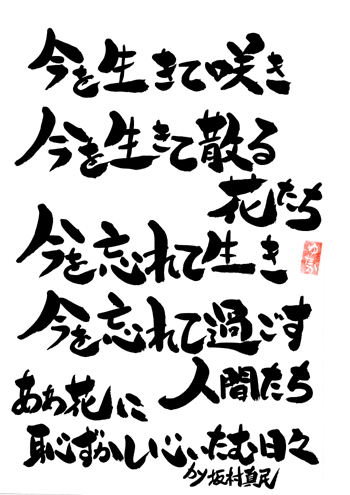 今を生きて咲き
今を生きて散る
花たち
今を忘れて生き
今を忘れて過ごす
人間たち
ああ花に
恥ずかしい心いたむ日々
by 坂村真民
ゆたか